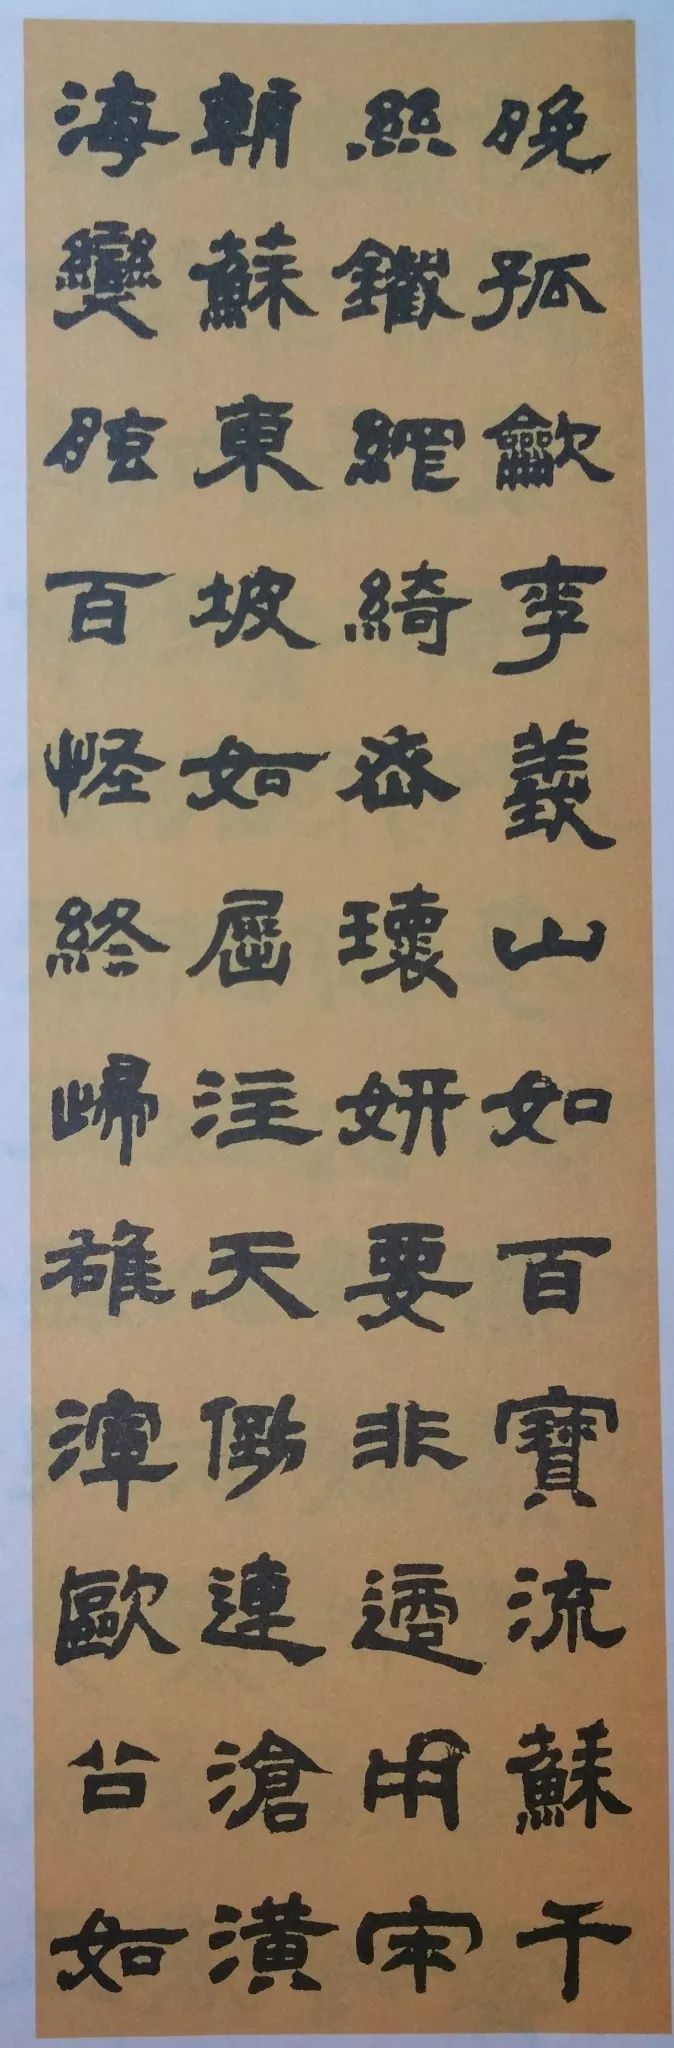 晚孤龡李義山如百寶流蘇千
絲鐵網綺密瓌妍要非適用宋
朝蘇東坡如屈注天倒連滄潢
海變眩百怪終歸雄渾歐公如